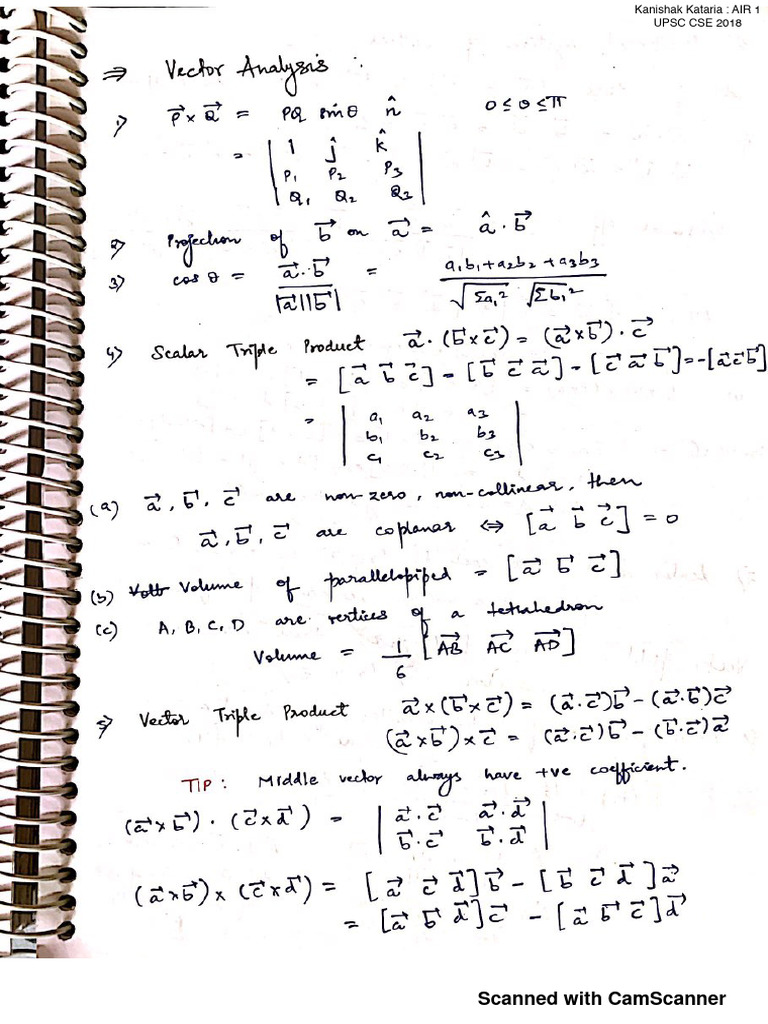 Kanishak Kataria : AIR 1
UPSC CSE 2018
⇒ Vector Analysis :
1) P⃗ × Q⃗ = PQ sinθ n̂ 0 ≤ θ ≤ π
= | î ĵ k̂ |
| P₁ P₂ P₃ |
| Q₁ Q₂ Q₃ |
2) Projection of b⃗ on a⃗ = â · b⃗
3) cos θ = a⃗ · b⃗ / |a⃗||b⃗| = a₁b₁ + a₂b₂ + a₃b₃ / √Σa₁² √Σb₁²
4) Scalar Triple Product a⃗ · (b⃗ × c⃗) = (a⃗ × b⃗) · c⃗
= [a⃗ b⃗ c⃗] = [b⃗ c⃗ a⃗] = [c⃗ a⃗ b⃗] = -[a⃗ c⃗ b⃗]
= | a₁ a₂ a₃ |
| b₁ b₂ b₃ |
| c₁ c₂ c₃ |
(a) a⃗, b⃗, c⃗ are non-zero, non-collinear, then
a⃗, b⃗, c⃗ are coplanar ⇔ [a⃗ b⃗ c⃗] = 0
(b) Volume of parallelopiped = [a⃗ b⃗ c⃗]
(c) A, B, C, D are vertices of a tetrahedron
Volume = 1/6 [AB⃗ AC⃗ AD⃗]
5) Vector Triple Product a⃗ × (b⃗ × c⃗) = (a⃗ · c⃗)b⃗ - (a⃗ · b⃗)c⃗
(a⃗ × b⃗) × c⃗ = (a⃗ · c⃗)b⃗ - (b⃗ · c⃗)a⃗
TIP : Middle vector always have +ve coefficient.
(a⃗ × b⃗) · (c⃗ × d⃗) = | a⃗ · c⃗ a⃗ · d⃗ |
| b⃗ · c⃗ b⃗ · d⃗ |
(a⃗ × b⃗) × (c⃗ × d⃗) = [a⃗ c⃗ d⃗]b⃗ - [b⃗ c⃗ d⃗]a⃗
= [a⃗ b⃗ d⃗]c⃗ - [a⃗ b⃗ c⃗]d⃗
Scanned with CamScanner